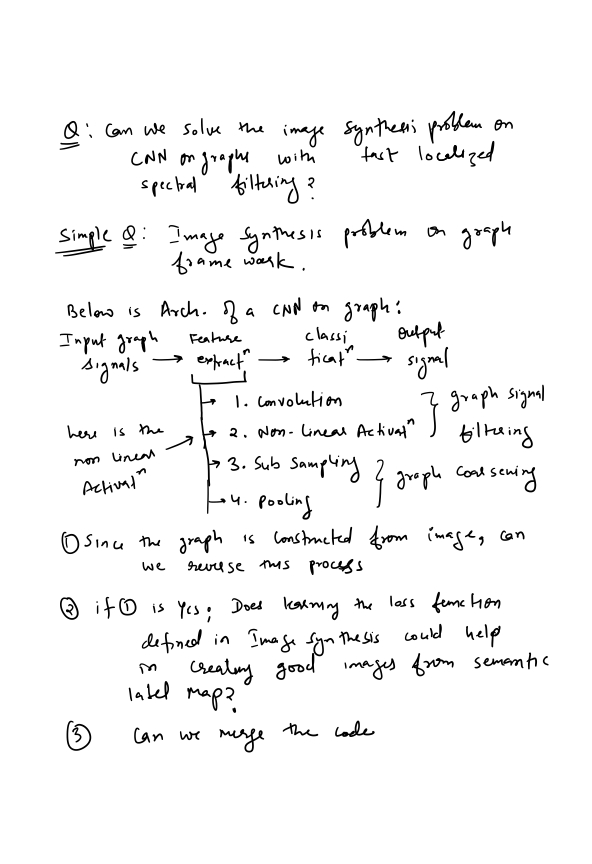 Q: Can we solve the image synthesis problem on
CNN on graphs with fast localized
spectral filtering?
Simple Q: Image synthesis problem on graph
frame work.
Below is Arch. of a CNN on graph:
Input graph signals → Feature extractⁿ → classificatⁿ → output signal
1. Convolution
2. Non-Linear Activatⁿ
graph signal filtering
here is the non linear Activatⁿ
3. Sub Sampling
4. Pooling
graph coarsening
① Since the graph is constructed from image, can
we reverse this process
② if ① is yes; Does learning the loss function
defined in Image synthesis could help
in creating good images from semantic
label map?
③ Can we merge the code